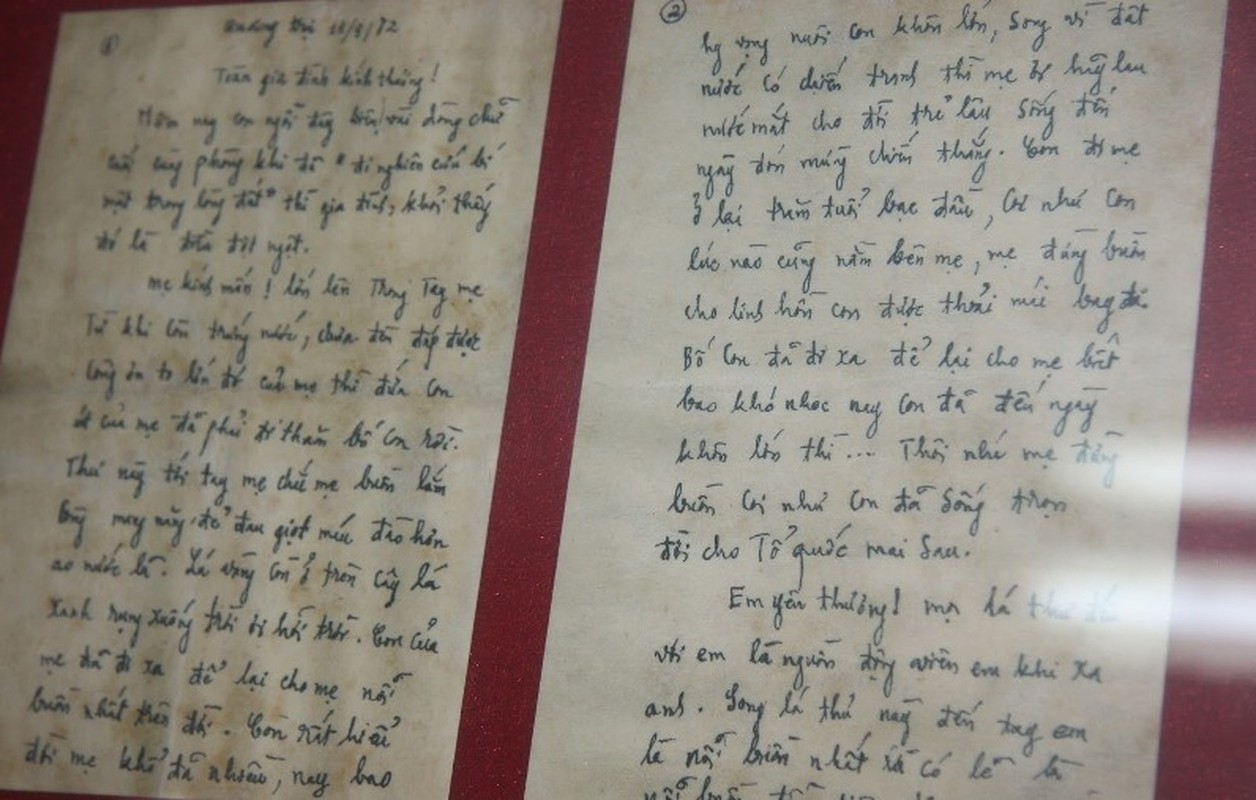 ①
Quảng Trị 11/9/72
Toàn gia đình kính thương!
Hôm nay con ngồi đây biên vài dòng chữ
cuối cùng phòng khi đã "đi nghiên cứu bí
mật trong lòng đất" thì gia đình khỏi thấy
đó là điều đột ngột.
mẹ kính mến! lớn lên Trong Tay mẹ
Từ khi còn trứng nước, chưa đền đáp được
công ơn to lớn đó của mẹ thì đứa con
út của mẹ đã phải đi thăm bố con rồi.
Thư này tới tay mẹ chắc mẹ buồn lắm
này để đau giọt máu đào hơn
ao nước lã. Lá vàng còn ở trên cây lá
xanh rụng xuống trời ơi hỡi trời. Con của
mẹ đã đi xa để lại cho mẹ nỗi
buồn nhất trên đời. Con rất hiểu
đời mẹ khổ đã nhiều, nay bao
②
hy vọng nuôi con khôn lớn, song vì đất
nước có chiến tranh thì mẹ ơi hãy lau
nước mắt cho đời trẻ lâu sống đến
ngày đón mừng chiến thắng. Con đi mẹ
ở lại trăm tuổi bạc đầu, Coi như con
lúc nào cũng nằm bên mẹ, mẹ đừng buồn
cho linh hồn con được thoải mái bay đi.
Bố con đã đi xa để lại cho mẹ biết
bao khó nhọc nay con đã đến ngày
khôn lớn thì... Thôi nhé mẹ đừng
buồn Coi như con đã sống trọn
đời cho Tổ quốc mai sau.
Em yêu thương! mọi lá thư
với em là nguồn động viên em khi xa
anh. Song lá thư này đến tay em
là nỗi buồn nhất và có lẽ là
nỗi buồn